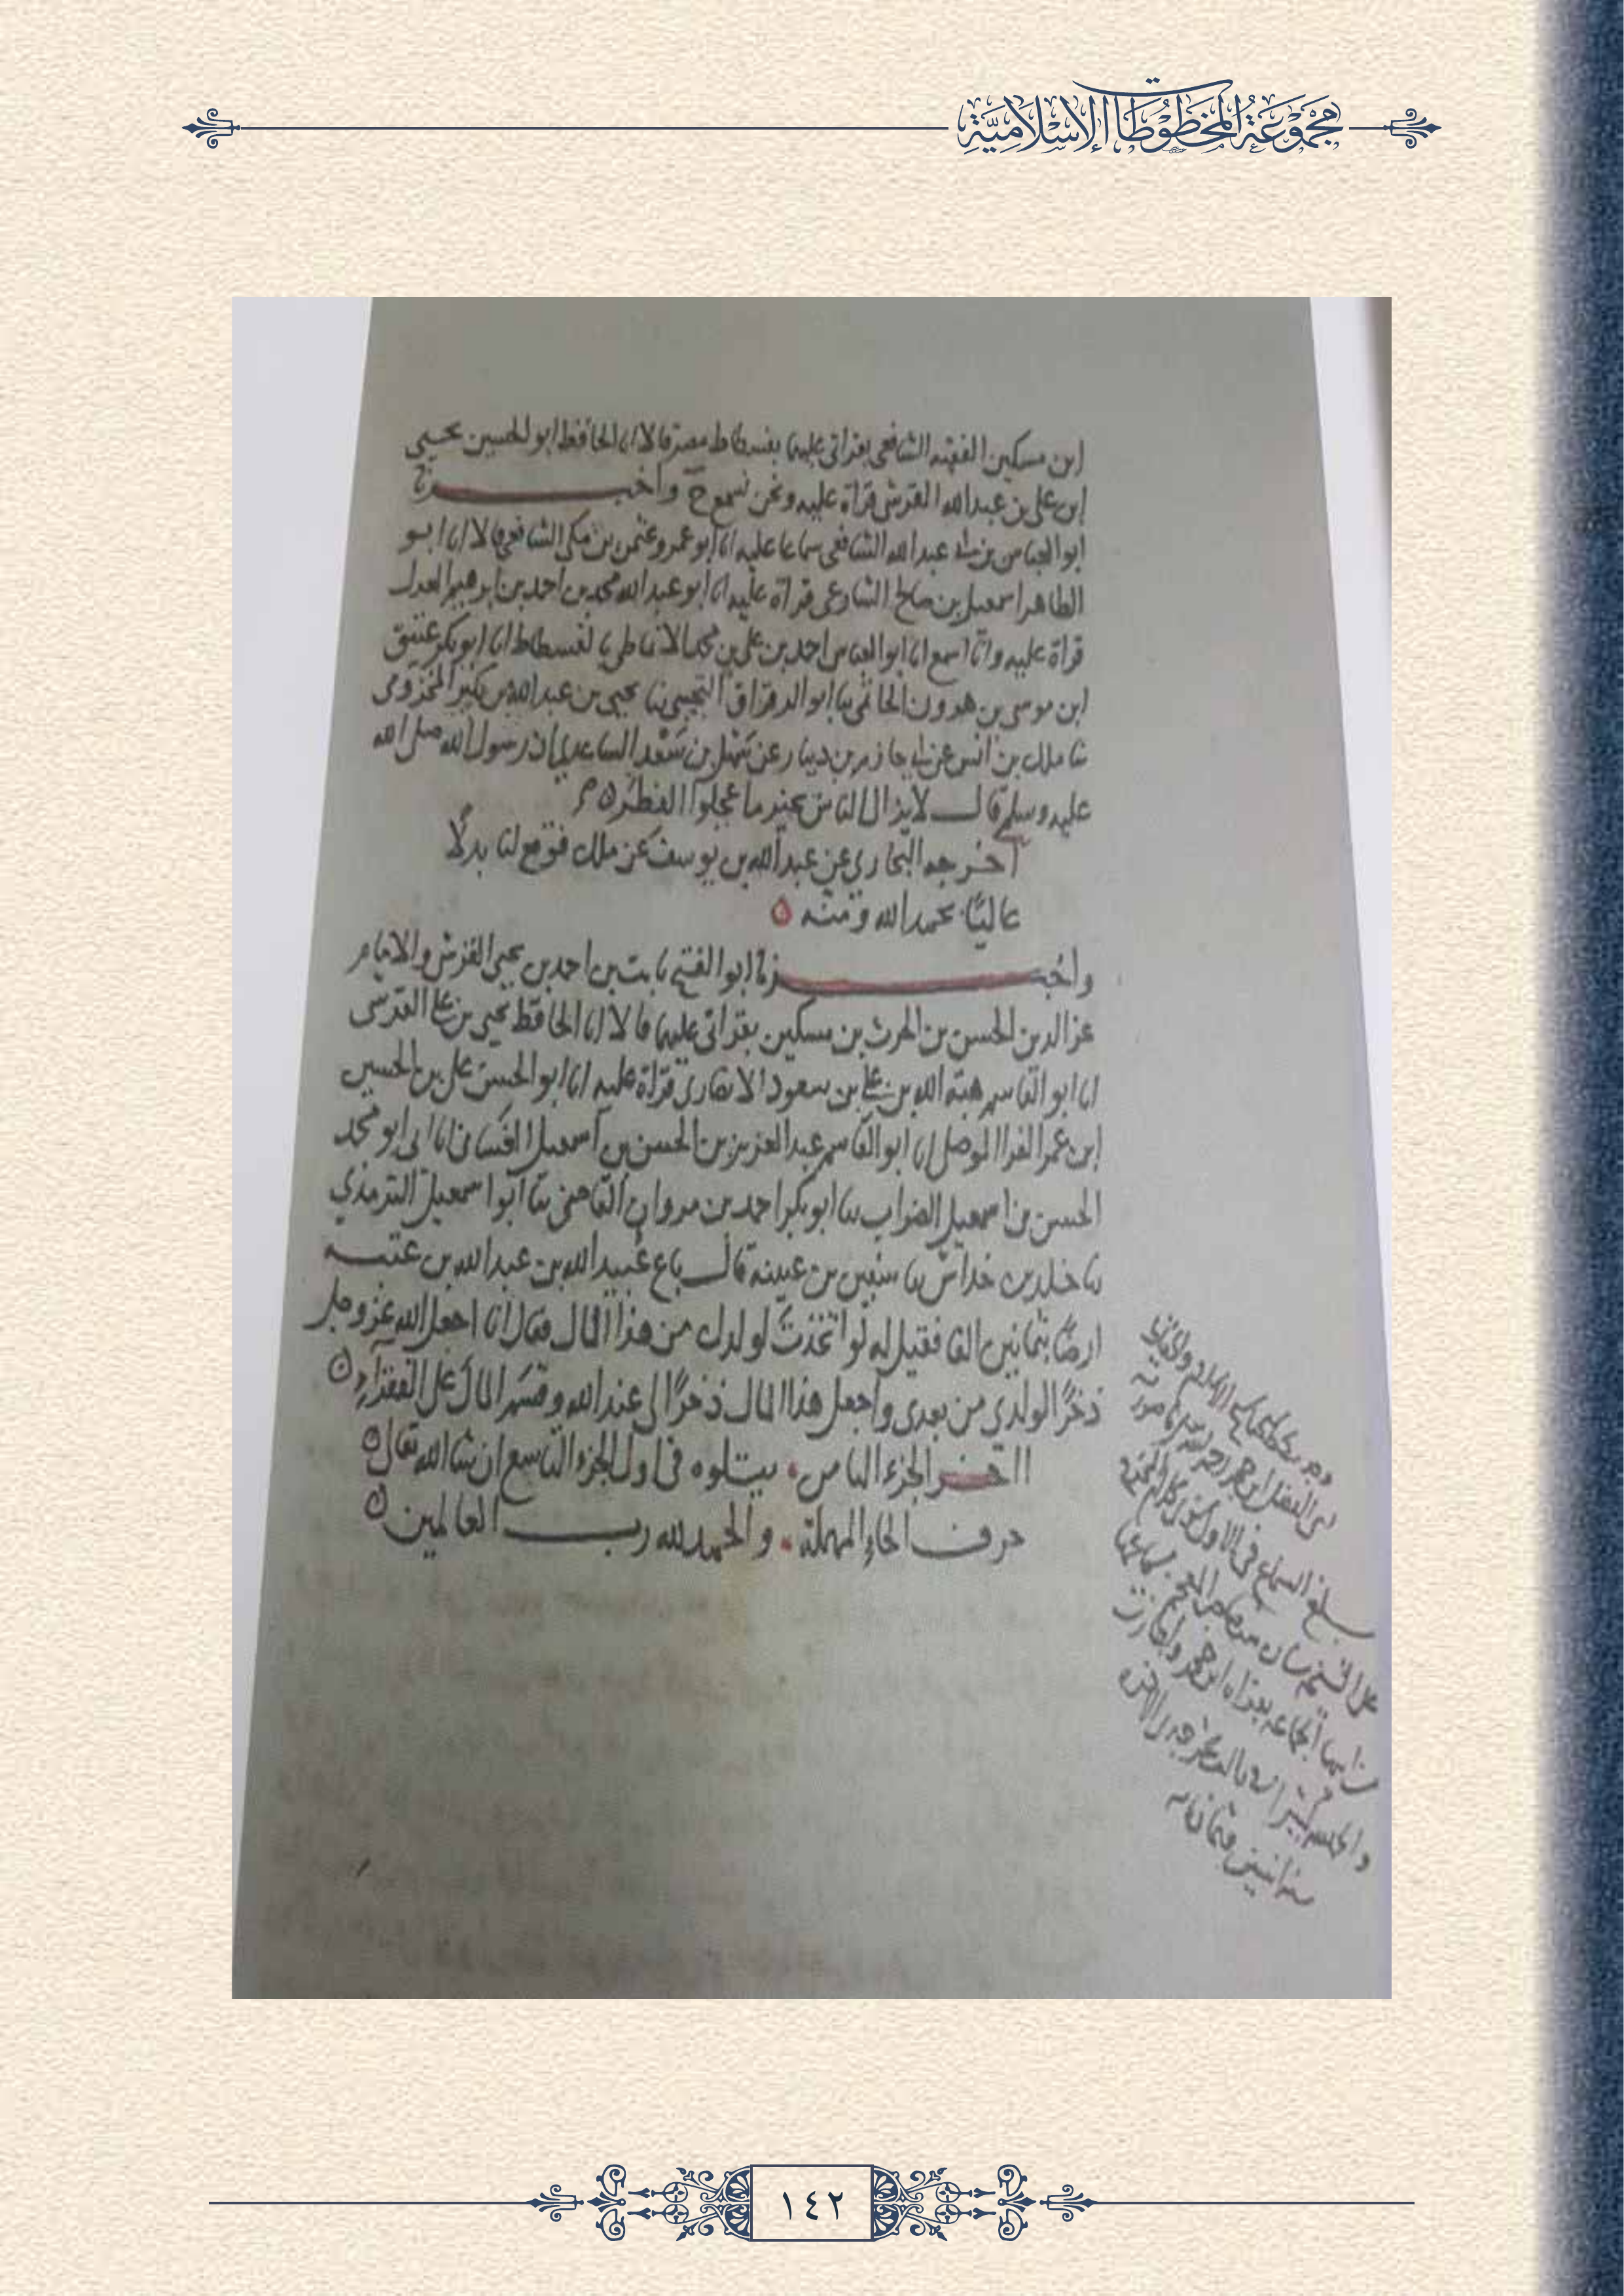 مجموعة المخطوطات الإسلامية
ابن مسكين الفقيه الشافعي بقراتي عليهما بفسطاط مصر قالا انا الحافظ ابو الحسين يحيى
ابن علي بن عبد الله القرشي قراة عليه ونحن نسمع ح واخبرنا
ابو العباس بن عبد الله الشافعي سماعا عليه انا ابو عمرو عثمن بن مكي الشافعي قالا انا ابو
الطاهر اسمعيل بن صالح الشارعي قراة عليه انا ابو عبد الله محمد بن احمد بن ابرهيم العدل
قراة عليه وانا اسمع انا ابو العباس احمد بن علي بن محمد الانماطي بالفسطاط انا ابو بكر عتيق
ابن موسى بن هرون الحاتمي نا ابو الرقراق التجيبي نا يحيى بن عبد الله بن بكير المخزومي
نا ملك بن انس عن ابي حازم بن دينار عن سهل بن سعد الساعدي ان رسول الله صلى الله
عليه وسلم قال لا يزال الناس بخير ما عجلوا الفطر
اخرجه البخاري عن عبد الله بن يوسف عن ملك فوقع لنا بدلًا
عاليًا بحمد الله ومنه
واخبرنا ابو الفتح ثابت بن احمد بن يحيى القرشي والامام
عز الدين الحسن بن الحرث بن مسكين بقراتي عليهما قالا انا الحافظ يحيى بن علي القرشي
انا ابو القاسم هبة الله بن علي بن سعود الانصاري قراة عليه انا ابو الحسن علي بن الحسين
ابن عمر الفرا الموصلي انا ابو القاسم عبد العزيز بن الحسن بن اسمعيل الغساني انا ابي ابو محمد
الحسن بن اسمعيل الضراب نا ابو بكر احمد بن مروان القاضي نا ابو اسمعيل الترمذي
نا خلد بن خداش نا سفين بن عيينه قال باع عبيد الله بن عبد الله بن عتبه
ارضًا بثمانين الفا فقيل له لو اتخذت لولدك من هذا المال فقال انا اجعل الله عز وجل
ذخرًا لولدي من بعدي واجعل هذا المال ذخرًا لي عند الله وقسم المال على الفقراء
اخر الجزء الثامن يتلوه في اول الجزء التاسع ان شا الله تعالى
حرف الحاء المهملة والحمد لله رب العالمين
بلغ السماع في الاول
على الشيخ
الجماعه بقراه
سنه اثنين وثمان مايه
١٤٢